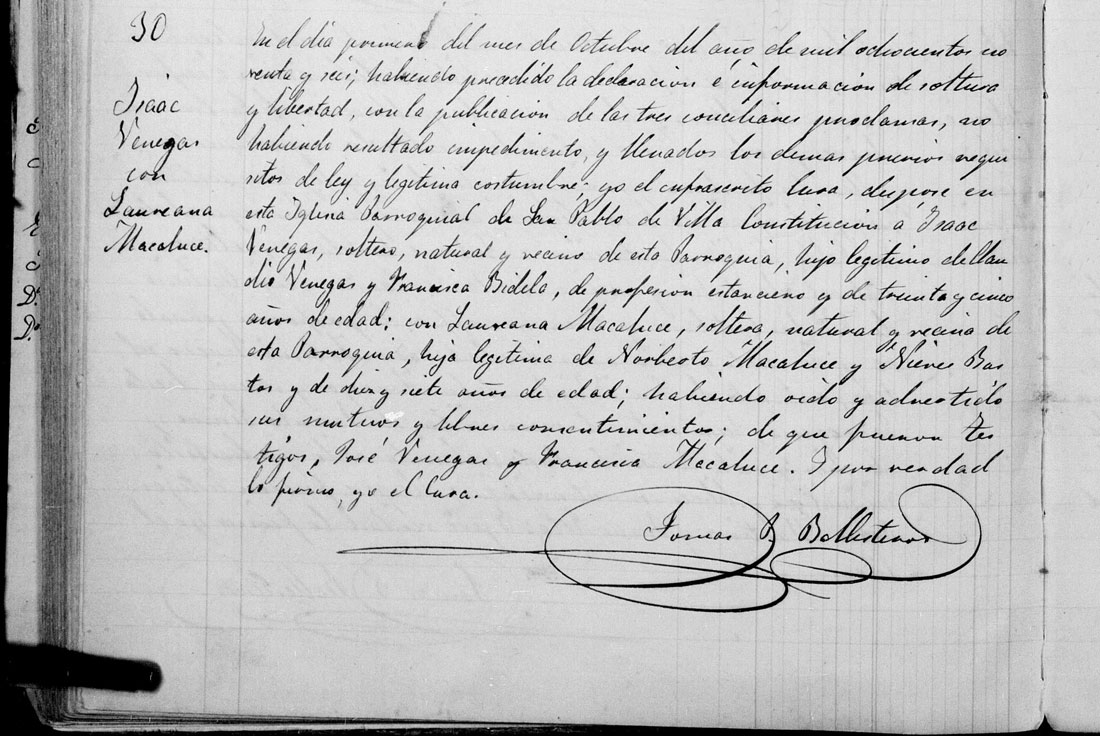 30
Isaac
Venegas
con
Laureana
Macaluce.
En el dia primero del mes de Octubre del año de mil ochocientos no
venta y seis; habiendo precedido la declaracion é informacion de soltura
y libertad, con la publicacion de las tres conciliares proclamas, no
habiendo resultado impedimento, y llenados los demas previos requi
sitos de ley y legitima costumbre; yo el infrascrito Cura, despose en
esta Iglesia Parroquial de San Pablo de Villa Constitucion á Isaac
Venegas, soltero, natural y vecino de esta Parroquia, hijo legitimo de Clau
dio Venegas y Francisca Bidela, de profesion estanciero y de treinta y cinco
años de edad; con Laureana Macaluce, soltera, natural y vecina de
esta Parroquia, hija legitima de Norberto Macaluce y Nieves Bus
tos y de diez y siete años de edad; habiendo oido y advertido
sus mutuos y libres consentimientos; de que fueron tes
tigos, José Venegas y Francisca Macaluce. I por verdad
lo firmo, yo el Cura.
Tomas B